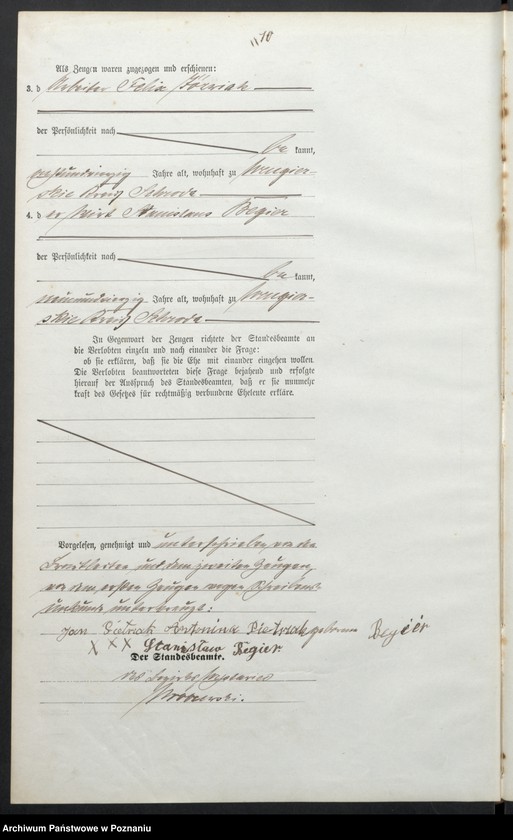 Als Zeugen waren zugezogen und erschienen:
3. d Arbeiter Felix
der Persönlichkeit nach
be kannt,
Jahre alt, wohnhaft zu Wengier-
skie Kreis Schroda
4. d er Wirt Stanislaus Begier
der Persönlichkeit nach
be kannt,
neunundvierzig Jahre alt, wohnhaft zu Wengier-
skie Kreis Schroda
In Gegenwart der Zeugen richtete der Standesbeamte an
die Verlobten einzeln und nach einander die Frage:
ob sie erklären, daß sie die Ehe mit einander eingehen wollen.
Die Verlobten beantworteten diese Frage bejahend und erfolgte
hierauf der Ausspruch des Standesbeamten, daß er sie nunmehr
kraft des Gesetzes für rechtmäßig verbundene Eheleute erkläre.
Vorgelesen, genehmigt und unterschrieben, von den
Brautleuten und dem zweiten Zeugen,
von dem ersten Zeugen wegen Schreibens-
unkunde unterkreuzt:
Jan Pietrzak Pietrzak geborene Begier
X X X Stanisław Begier
Der Standesbeamte.
Archiwum Państwowe w Poznaniu